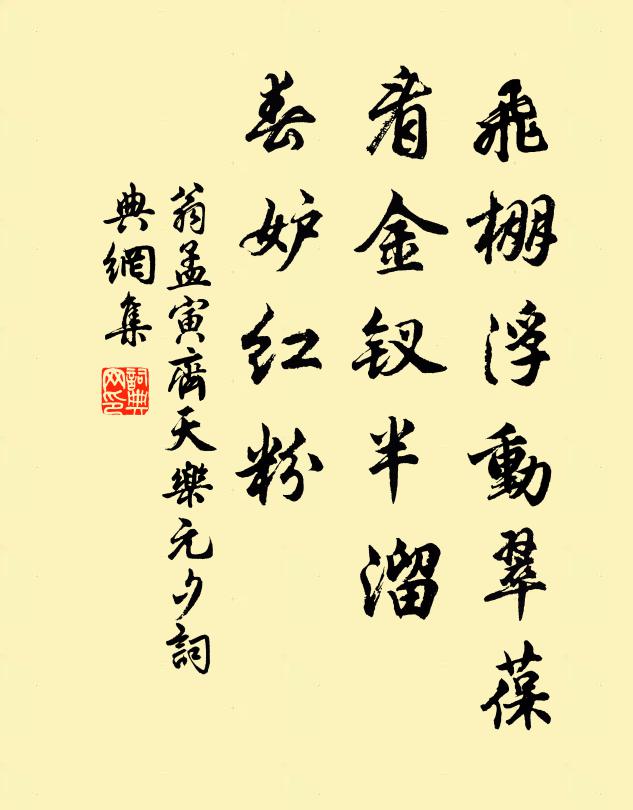 飛棚浮動翠葆
看金釵半溜
春妒紅粉
翁孟寅齊天樂元夕詞
典網集
詞典網印